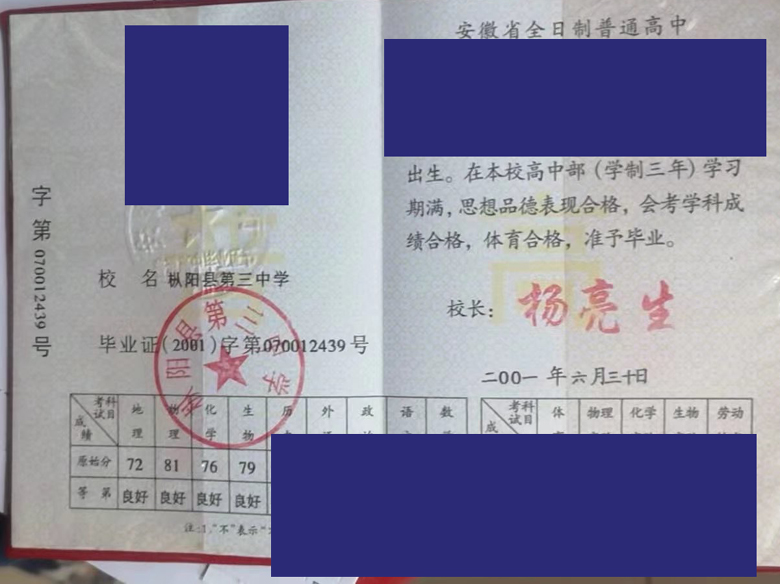 字第070012439号
校 名 枞阳县第三中学
毕业证(2001)字第070012439号
阳县第三中学
考试科目 成绩 地理 物理 化学 生物 历 外 政 语 数
原始分 72 81 76 79
等 第 良好 良好 良好 良好
注:1,"不"表示"
安徽省全日制普通高中
出生。在本校高中部(学制三年)学习
期满,思想品德表现合格,会考学科成
绩合格,体育合格,准予毕业。
校长: 杨亮生
二00一 年六月三十日
考试科目 成 体 物理 化学 生物 劳动